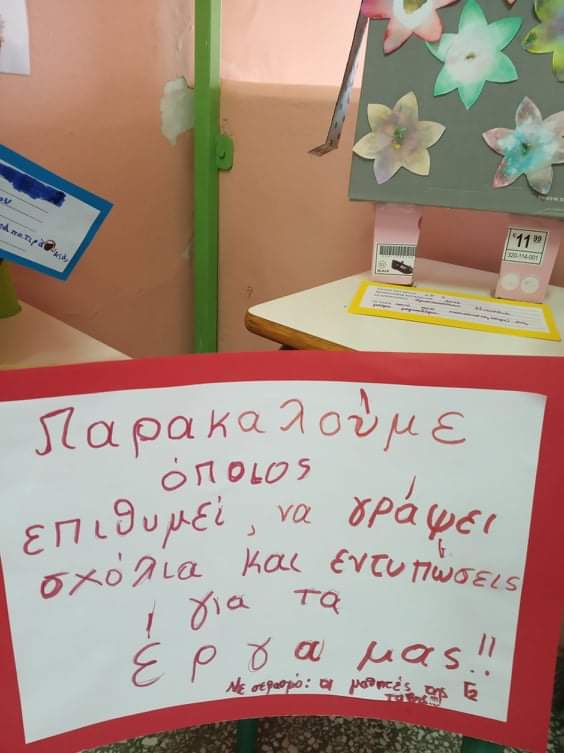 Παρακαλούμε
όποιος
επιθυμεί, να γράψει
σχόλια και εντυπώσεις
για τα
έργα μας!!
Με σεβασμό: οι μαθητές της Γ2
τάξης!!!
€11 99
320-114-001
BLACK